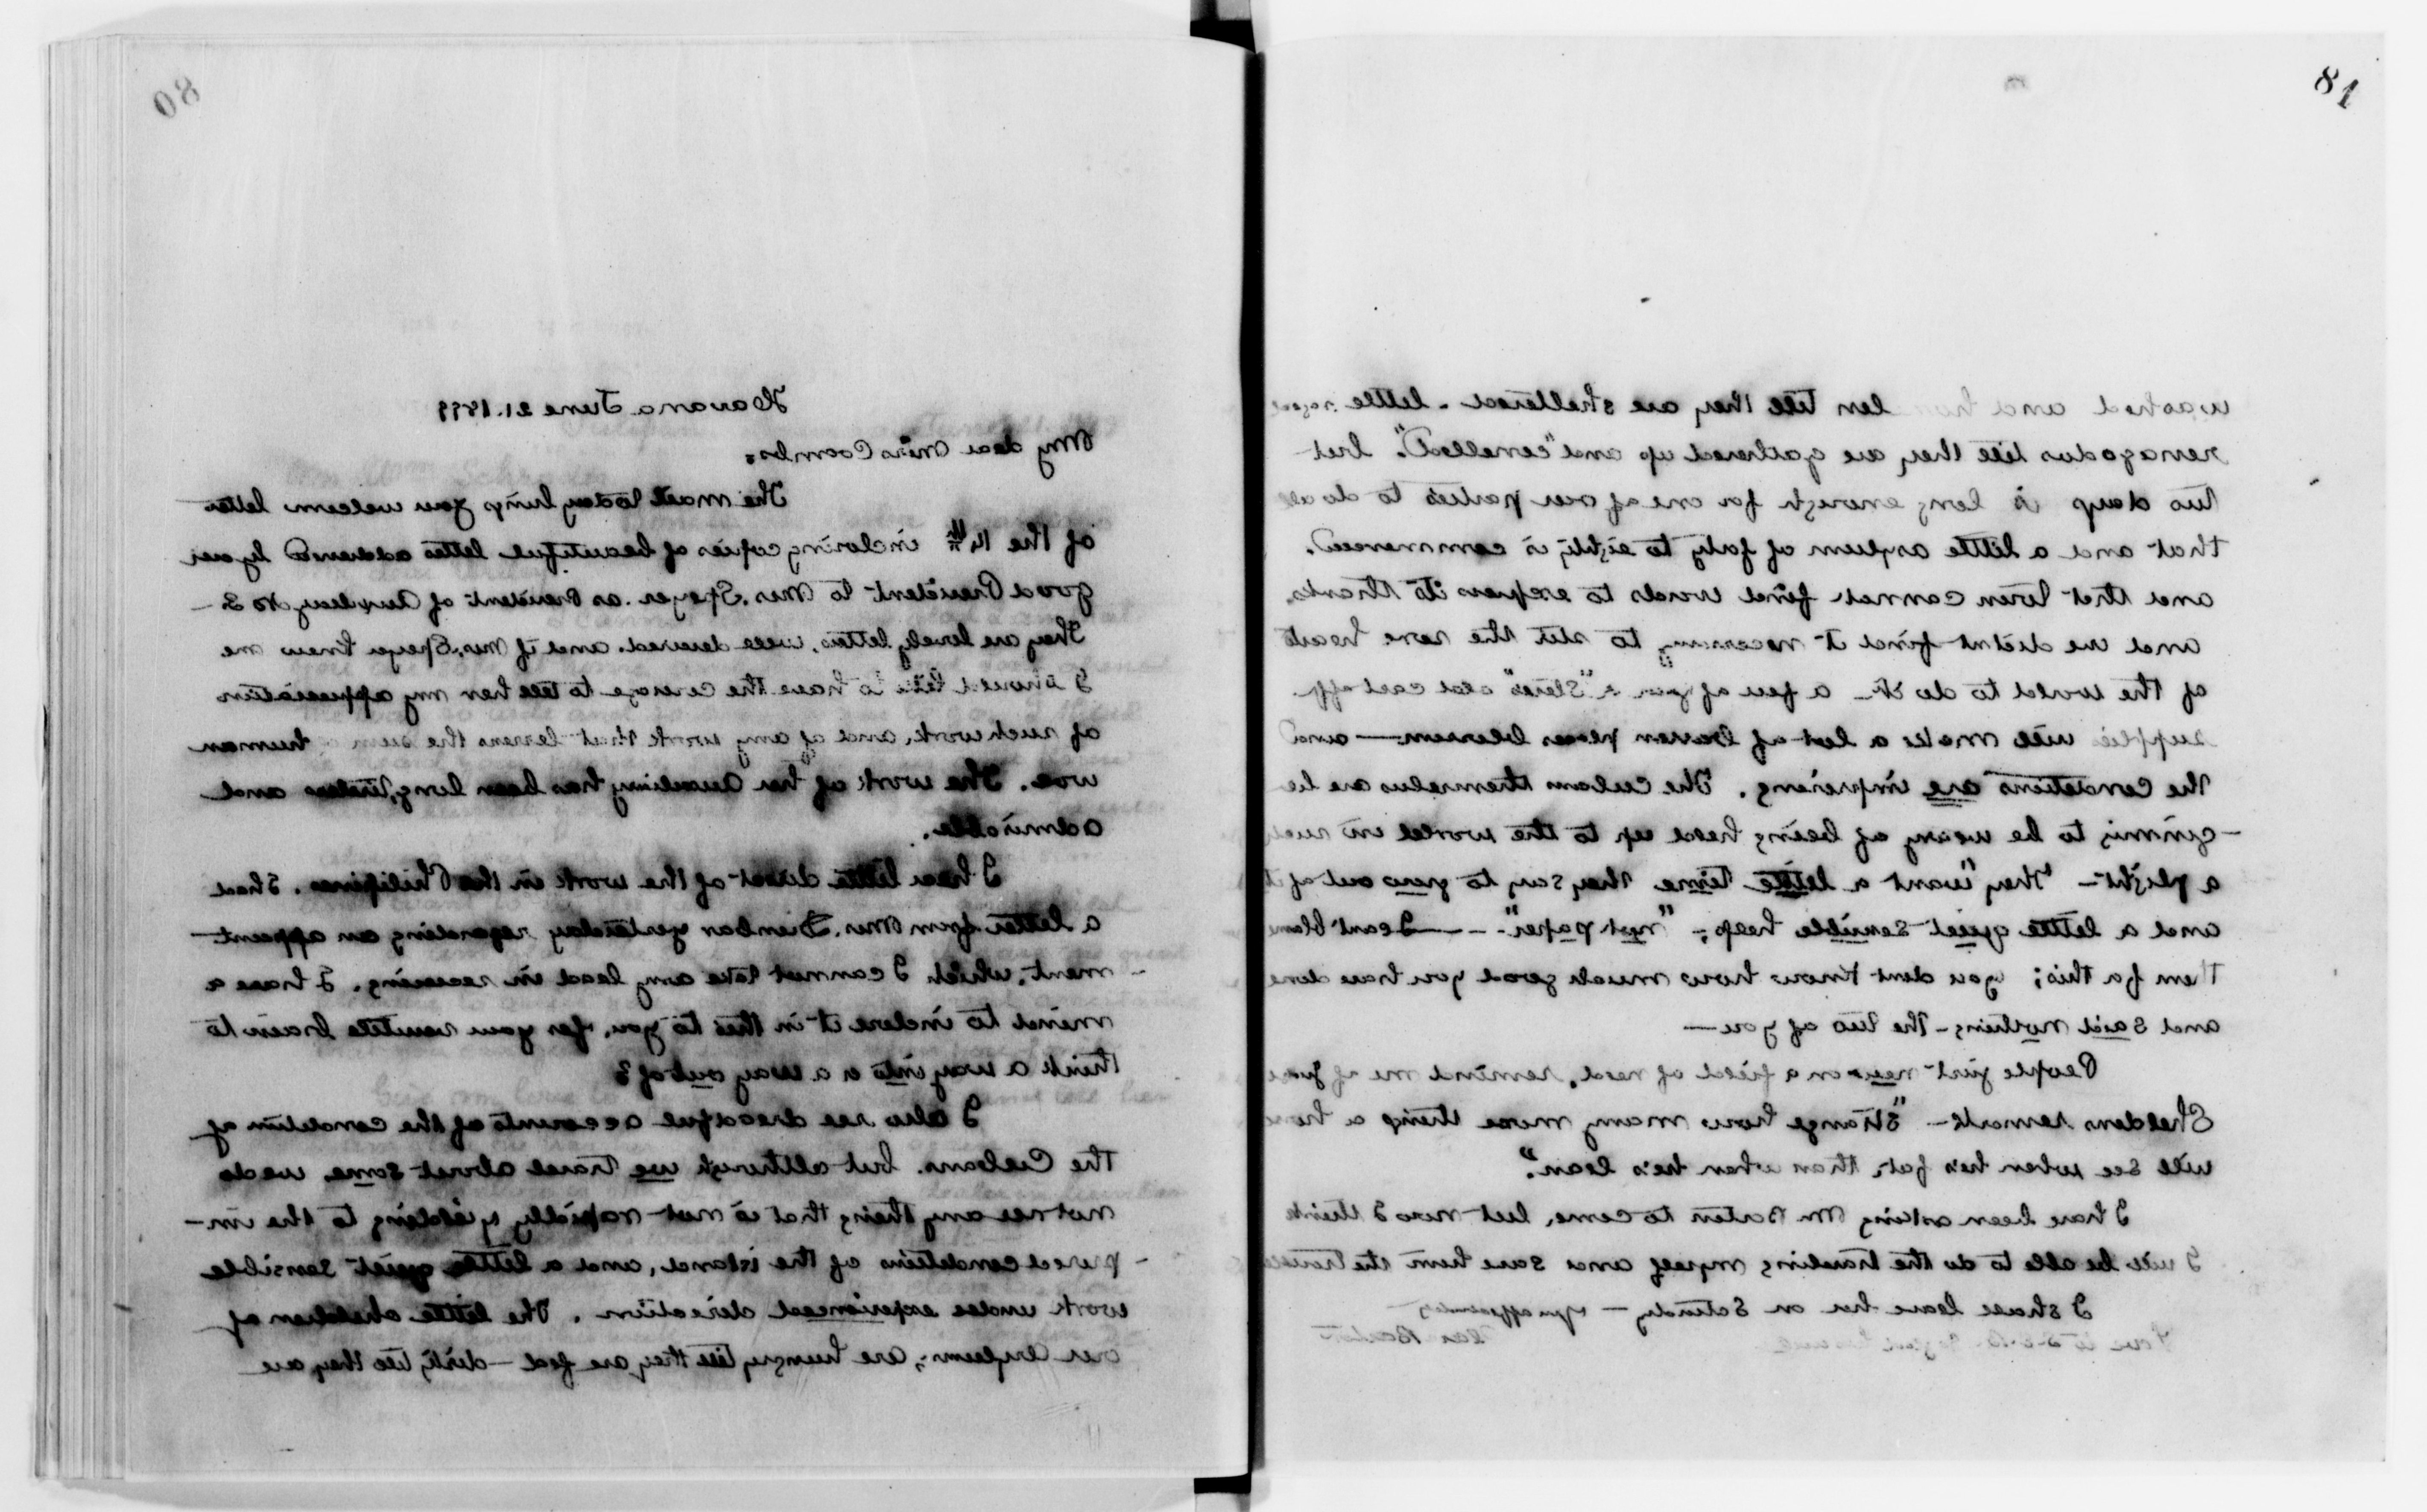 80
Havana June 21. 1899
My dear Miss Coombs.
The mail today brings your welcom letter
of the 14th inclosing copies of beautiful letter address by our
good President to Mrs. Speyer. as President of Auxiliary No 3 -
They are lovely letters, well deserved. and if Mrs. Speyer knew me
I should like to have the courage to tell her my appreciation
of such work, and of any work that lessens the sum of human
woe. The work of her Auxiliary has been long, tireless and
admirable.
I hear little direct of the work in the Philipines. I had
a letter from Mrs. yesterday regarding an appoint
-ment, which I cannot take any lead in securing. I have a
mind to inclose it in this to you, for your subtile brain to
think a way into or a way out of?
I also see dreadful accounts of the condition of
the Cubans. but although we travel about some, we do
not see any thing that is not rapidly yielding to the im-
-proved condition of the island, and, a little quiet sensible
work under experienced direction. The little children of
our Asylums, are hungry till they are fed - dirty till they are
81
washed and till they are shelterd - little
renagodus till they are gathered up and "corralled". but
two days is long enough for one of our parties to do all
that and a little asylum of forty to eighty is commenced.
and that town cannot find words to express its thanks.
and we didnt find it necessary to stir the sore hearts
of the world to do it - a few of your "Stores" old cast off
supplies will make a lot of barren places blossom - and
the conditions are improving. The cubans themselves are be
-ginning to be weary of being held up to the world in such
a plight - They "want a little time they say, to grow out of it
and a little quiet sensible help, - "not paper". - I cant blame
them for this; you dont know how much good you have done
and said nothing - the two of you -
People just new on a field of need, remind me of
Sheldons remark - "Strange how many more things a horse
will see when he's fat, than when he's lean".
I have been asking Mr Barton to come, but now I think
I will be able to do the traveling myself and save him the trouble
I shall leave here on Saturday - yrs affectionately
Clara Barton